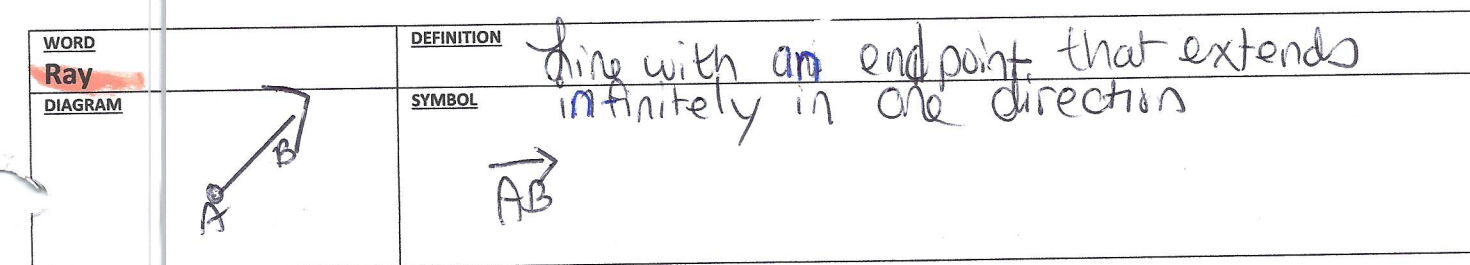 WORD
Ray
DEFINITION
Line with an endpoint that extends
infinitely in one direction
DIAGRAM
B
A
SYMBOL
AB